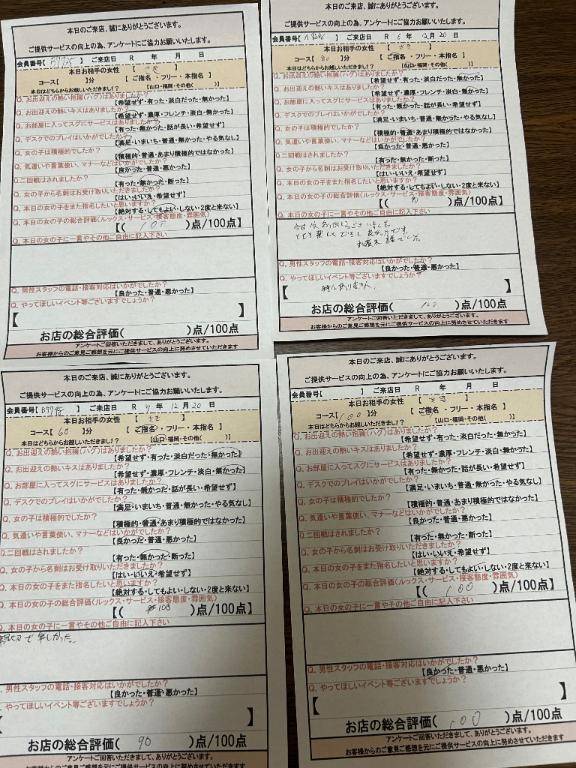 本日のご来店、誠にありがとうございます。
ご提供サービスの向上の為、アンケートにご協力お願いいたします。
会員番号【 】 ご来店日 R 年 月 日
本日お相手の女性
コース【 】分 【 ご指名・フリー・本指名 】
本日はどちらからお越しいただきましたか!？ 【山口・福岡・その他( )】
Q. お出迎えの熱い抱擁(ハグ)はありましたか?
【希望せず・有った・淡白だった・無かった】
Q. お出迎えの熱いキスはありましたか?
【希望せず・濃厚・フレンチ・淡白・無かった】
Q. お部屋に入ってスグにサービスはありましたか?
【有った・無かった・話が長い・希望せず】
Q. デスクでのプレイはいかがでしたか?
【満足・いまいち・普通・無かった・やる気なし】
Q. 女の子は積極的でしたか?
【積極的・普通・あまり積極的ではなかった】
Q. 気遣いや言葉使い、マナーなどはいかがでしたか?
【良かった・普通・悪かった】
Q.二回戦はされましたか?
【有った・無かった・断った】
Q. 女の子から名刺はお受け取りいただきましたか?
【はい・いいえ・希望せず】
Q. 本日の女の子をまた指名したいと思いますか?
【絶対する・してもよい・しない・2度と来ない】
Q. 本日の女の子の総合評価(ルックス・サービス・接客態度・雰囲気)
【( 100 )点/100点】
Q. 本日の女の子に一言やその他ご自由に記入下さい
Q. 男性スタッフの電話・接客対応はいかがでしたか?
【良かった・普通・悪かった】
Q. やってほしいイベント等ございますでしょうか?
【 】
お店の総合評価( )点/100点
アンケートにご回答いただきまして、ありがとうございました。
お客様からのご意見ご感想を元にご提供サービスの向上に努めさせていただきます
本日のご来店、誠にありがとうございます。
ご提供サービスの向上の為、アンケートにご協力お願いいたします。
会員番号【 】 ご来店日 R 6 年 12 月 20 日
本日お相手の女性
コース【 80 】分 【 ご指名・フリー・本指名 】
本日はどちらからお越しいただきましたか!？ 【山口・福岡・その他( )】
Q. お出迎えの熱い抱擁(ハグ)はありましたか?
【希望せず・有った・淡白だった・無かった】
Q. お出迎えの熱いキスはありましたか?
【希望せず・濃厚・フレンチ・淡白・無かった】
Q. お部屋に入ってスグにサービスはありましたか?
【有った・無かった・話が長い・希望せず】
Q. デスクでのプレイはいかがでしたか?
【満足・いまいち・普通・無かった・やる気なし】
Q. 女の子は積極的でしたか?
【積極的・普通・あまり積極的ではなかった】
Q. 気遣いや言葉使い、マナーなどはいかがでしたか?
【良かった・普通・悪かった】
Q.二回戦はされましたか?
【有った・無かった・断った】
Q. 女の子から名刺はお受け取りいただきましたか?
【はい・いいえ・希望せず】
Q. 本日の女の子をまた指名したいと思いますか?
【絶対する・してもよい・しない・2度と来ない】
Q. 本日の女の子の総合評価(ルックス・サービス・接客態度・雰囲気)
【( )点/100点】
Q. 本日の女の子に一言やその他ご自由に記入下さい
Q. 男性スタッフの電話・接客対応はいかがでしたか?
【良かった・普通・悪かった】
Q. やってほしいイベント等ございますでしょうか?
【 】
お店の総合評価( 100 )点/100点
アンケートにご回答いただきまして、ありがとうございました。
お客様からのご意見ご感想を元にご提供サービスの向上に努めさせていただきます
本日のご来店、誠にありがとうございます。
ご提供サービスの向上の為、アンケートにご協力お願いいたします。
会員番号【 】 ご来店日 R 年 12 月 20 日
本日お相手の女性
コース【 60 】分 【 ご指名・フリー・本指名 】
本日はどちらからお越しいただきましたか!？ 【山口・福岡・その他( )】
Q. お出迎えの熱い抱擁(ハグ)はありましたか?
【希望せず・有った・淡白だった・無かった】
Q. お出迎えの熱いキスはありましたか?
【希望せず・濃厚・フレンチ・淡白・無かった】
Q. お部屋に入ってスグにサービスはありましたか?
【有った・無かった・話が長い・希望せず】
Q. デスクでのプレイはいかがでしたか?
【満足・いまいち・普通・無かった・やる気なし】
Q. 女の子は積極的でしたか?
【積極的・普通・あまり積極的ではなかった】
Q. 気遣いや言葉使い、マナーなどはいかがでしたか?
【良かった・普通・悪かった】
Q.二回戦はされましたか?
【有った・無かった・断った】
Q. 女の子から名刺はお受け取りいただきましたか?
【はい・いいえ・希望せず】
Q. 本日の女の子をまた指名したいと思いますか?
【絶対する・してもよい・しない・2度と来ない】
Q. 本日の女の子の総合評価(ルックス・サービス・接客態度・雰囲気)
【( 100 )点/100点】
Q. 本日の女の子に一言やその他ご自由に記入下さい
Q. 男性スタッフの電話・接客対応はいかがでしたか?
【良かった・普通・悪かった】
Q. やってほしいイベント等ございますでしょうか?
【 】
お店の総合評価( 90 )点/100点
アンケートにご回答いただきまして、ありがとうございました。
お客様からのご意見ご感想を元にご提供サービスの向上に努めさせていただきます
本日のご来店、誠にありがとうございます。
ご提供サービスの向上の為、アンケートにご協力お願いいたします。
会員番号【 】 ご来店日 R 年 月 日
本日お相手の女性
コース【 100 】分 【 ご指名・フリー・本指名 】
本日はどちらからお越しいただきましたか!？ 【山口・福岡・その他( )】
Q. お出迎えの熱い抱擁(ハグ)はありましたか?
【希望せず・有った・淡白だった・無かった】
Q. お出迎えの熱いキスはありましたか?
【希望せず・濃厚・フレンチ・淡白・無かった】
Q. お部屋に入ってスグにサービスはありましたか?
【有った・無かった・話が長い・希望せず】
Q. デスクでのプレイはいかがでしたか?
【満足・いまいち・普通・無かった・やる気なし】
Q. 女の子は積極的でしたか?
【積極的・普通・あまり積極的ではなかった】
Q. 気遣いや言葉使い、マナーなどはいかがでしたか?
【良かった・普通・悪かった】
Q.二回戦はされましたか?
【有った・無かった・断った】
Q. 女の子から名刺はお受け取りいただきましたか?
【はい・いいえ・希望せず】
Q. 本日の女の子をまた指名したいと思いますか?
【絶対する・してもよい・しない・2度と来ない】
Q. 本日の女の子の総合評価(ルックス・サービス・接客態度・雰囲気)
【( 100 )点/100点】
Q. 本日の女の子に一言やその他ご自由に記入下さい
Q. 男性スタッフの電話・接客対応はいかがでしたか?
【良かった・普通・悪かった】
Q. やってほしいイベント等ございますでしょうか?
【 】
お店の総合評価( 100 )点/100点
アンケートにご回答いただきまして、ありがとうございました。
お客様からのご意見ご感想を元にご提供サービスの向上に努めさせていただきます